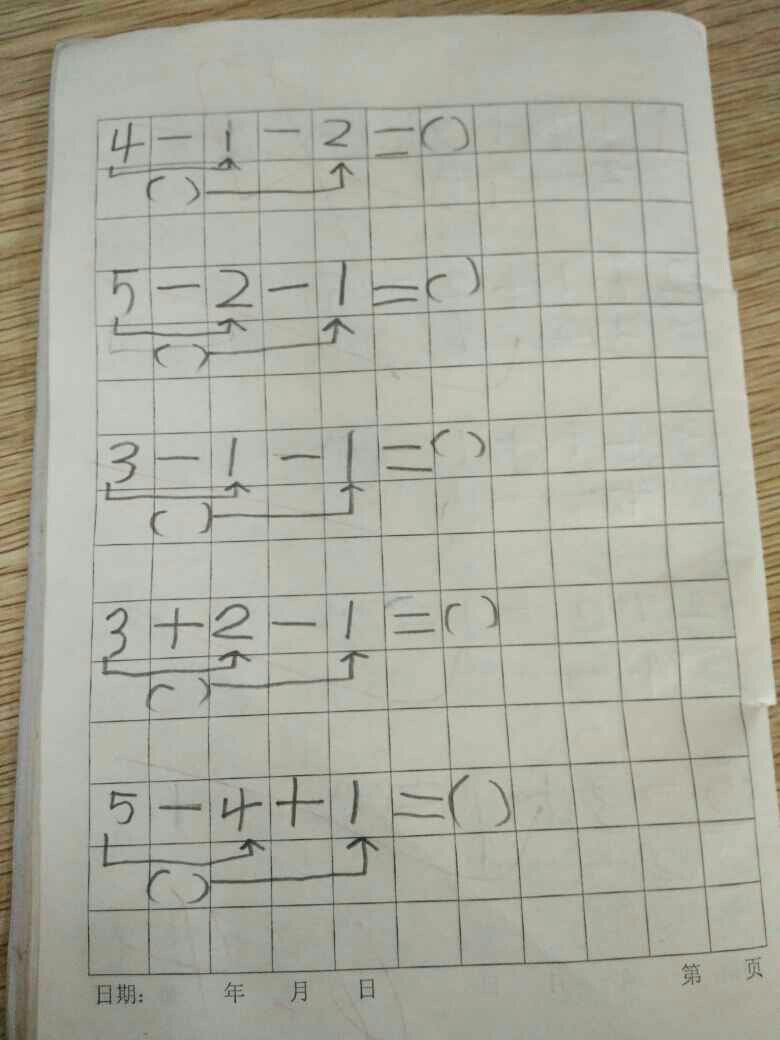 4-1-2=()
()
5-2-1=()
()
3-1-1=()
()
3+2-1=()
()
5-4+1=()
()
日期: 年 月 日 第 页